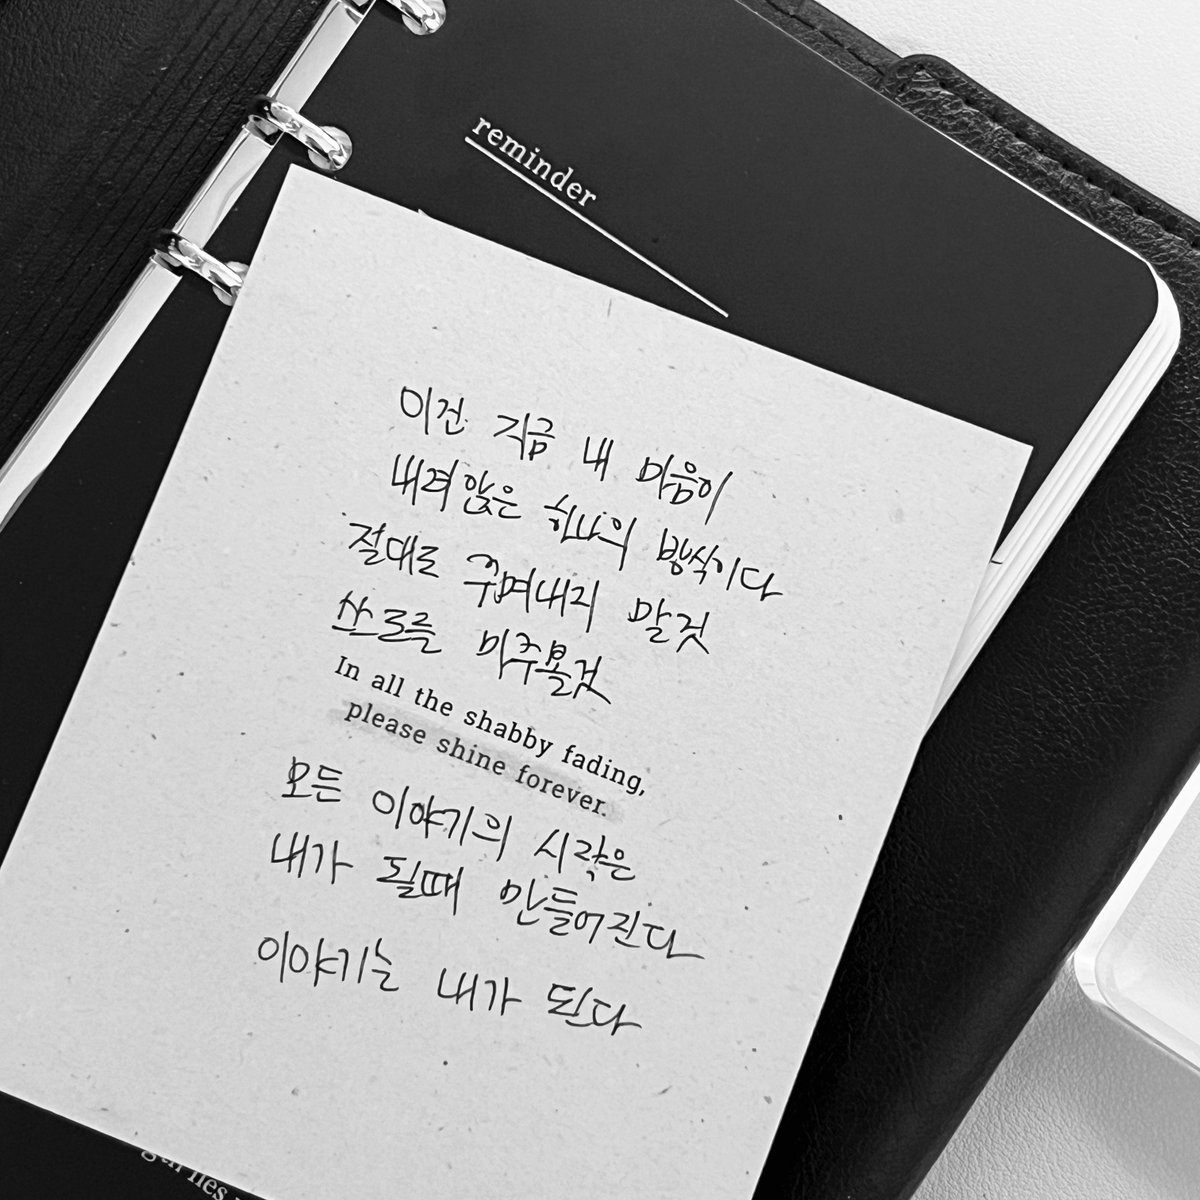 reminder
이건 지금 내 마음이
내려앉은 하나의 방식이다
절대로 꾸며내지 말것
스스로를 마주볼것
In all the shabby fading,
please shine forever.
모든 이야기의 시작은
내가 될때 만들어진다
이야기는 내가 된다
lies